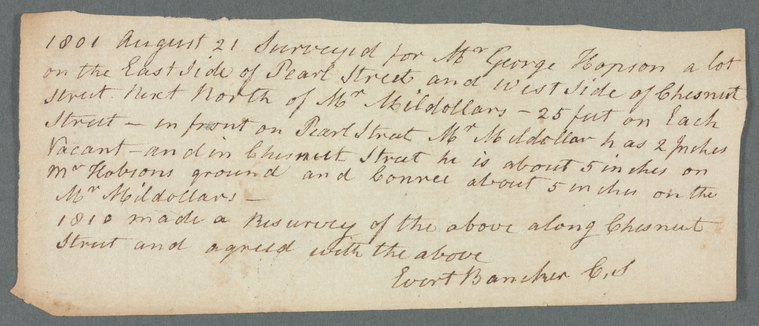 1801 August 21 Surveyed for Mr George Hopson a lot
on the East Side of Pearl Street and West Side of Chesnut
Street Next North of Mr Mildollars – 25 feet on Each
Street – in front on Pearl Street Mr Mildollar has 2 Inches
Vacant – and in Chesnutt Street he is about 5 inches on
Mr Hobsons ground and Conree about 5 inches on the
Mr Mildollars –
1810 made a Resurvey of the above along Chesnut
Street and agreed with the above
Evert Bancker C.S